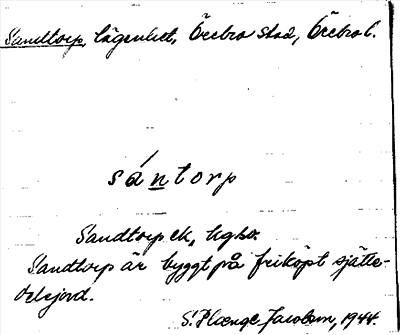 Sandtorp, lägenhet, Örebro stad, Örebro l.
sántorp
Sandtorp ek, kgbo.
Sandtorp är byggt på friköpt sjätte-
delsjord.
S. Plænge Jacobson, 1944